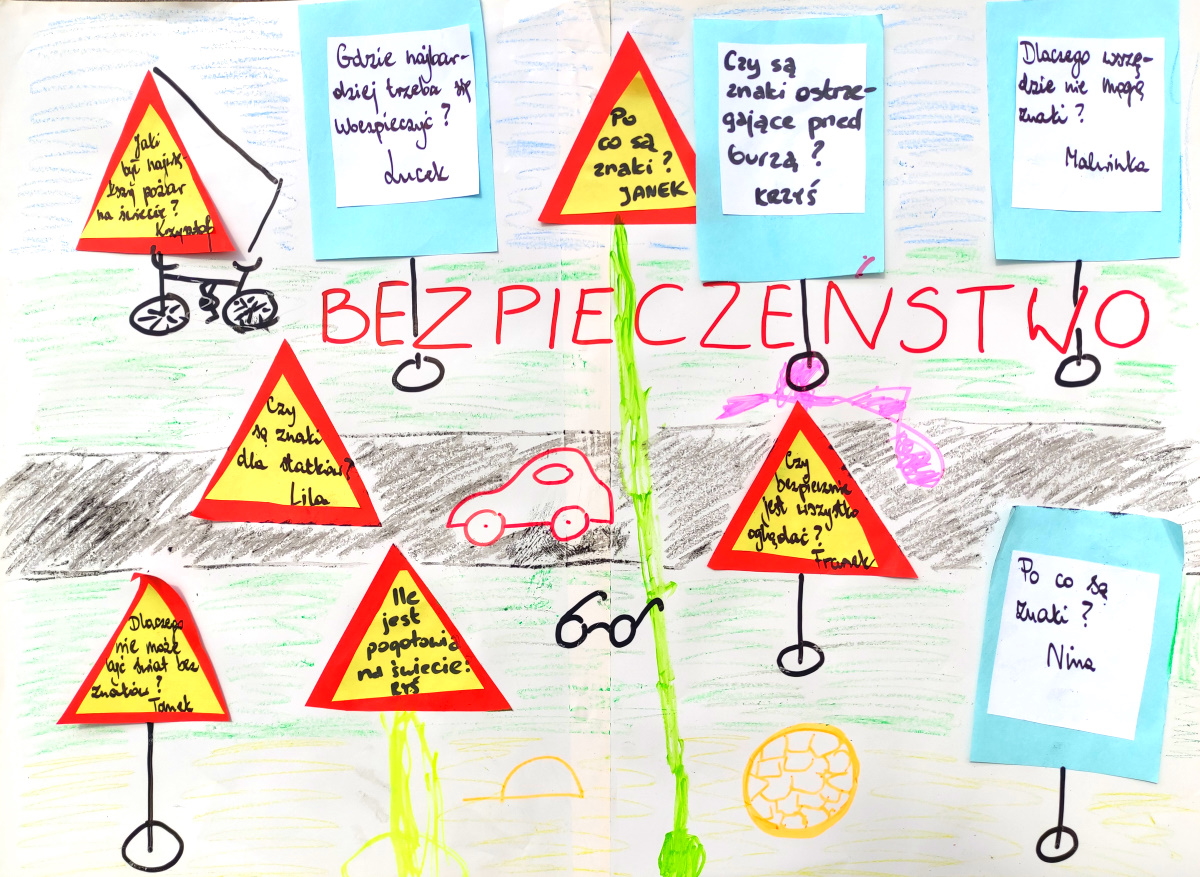 Jaki
być najwię-
kszy pożar
na świecie?
Krzysztof
Gdzie najbar-
dziej trzeba się
ubezpieczyć?
Lucek
Po
co są
znaki?
JANEK
Czy są
znaki ostrze-
gające pned
burzą?
KRZYŚ
Dlaczego wszę-
dzie nie mogę
znaki?
Malwinka
BEZPIECZEŃSTWO
Czy
są znaki
dla statków?
Lila
Czy
bezpiecznie
jest wszystko
oglądać?
Franek
Dlaczego
nie może
być świat bez
znaków?
Tomek
Ile
jest
pogotowia
na świecie?
RYŚ
Po co są
znaki?
Nina